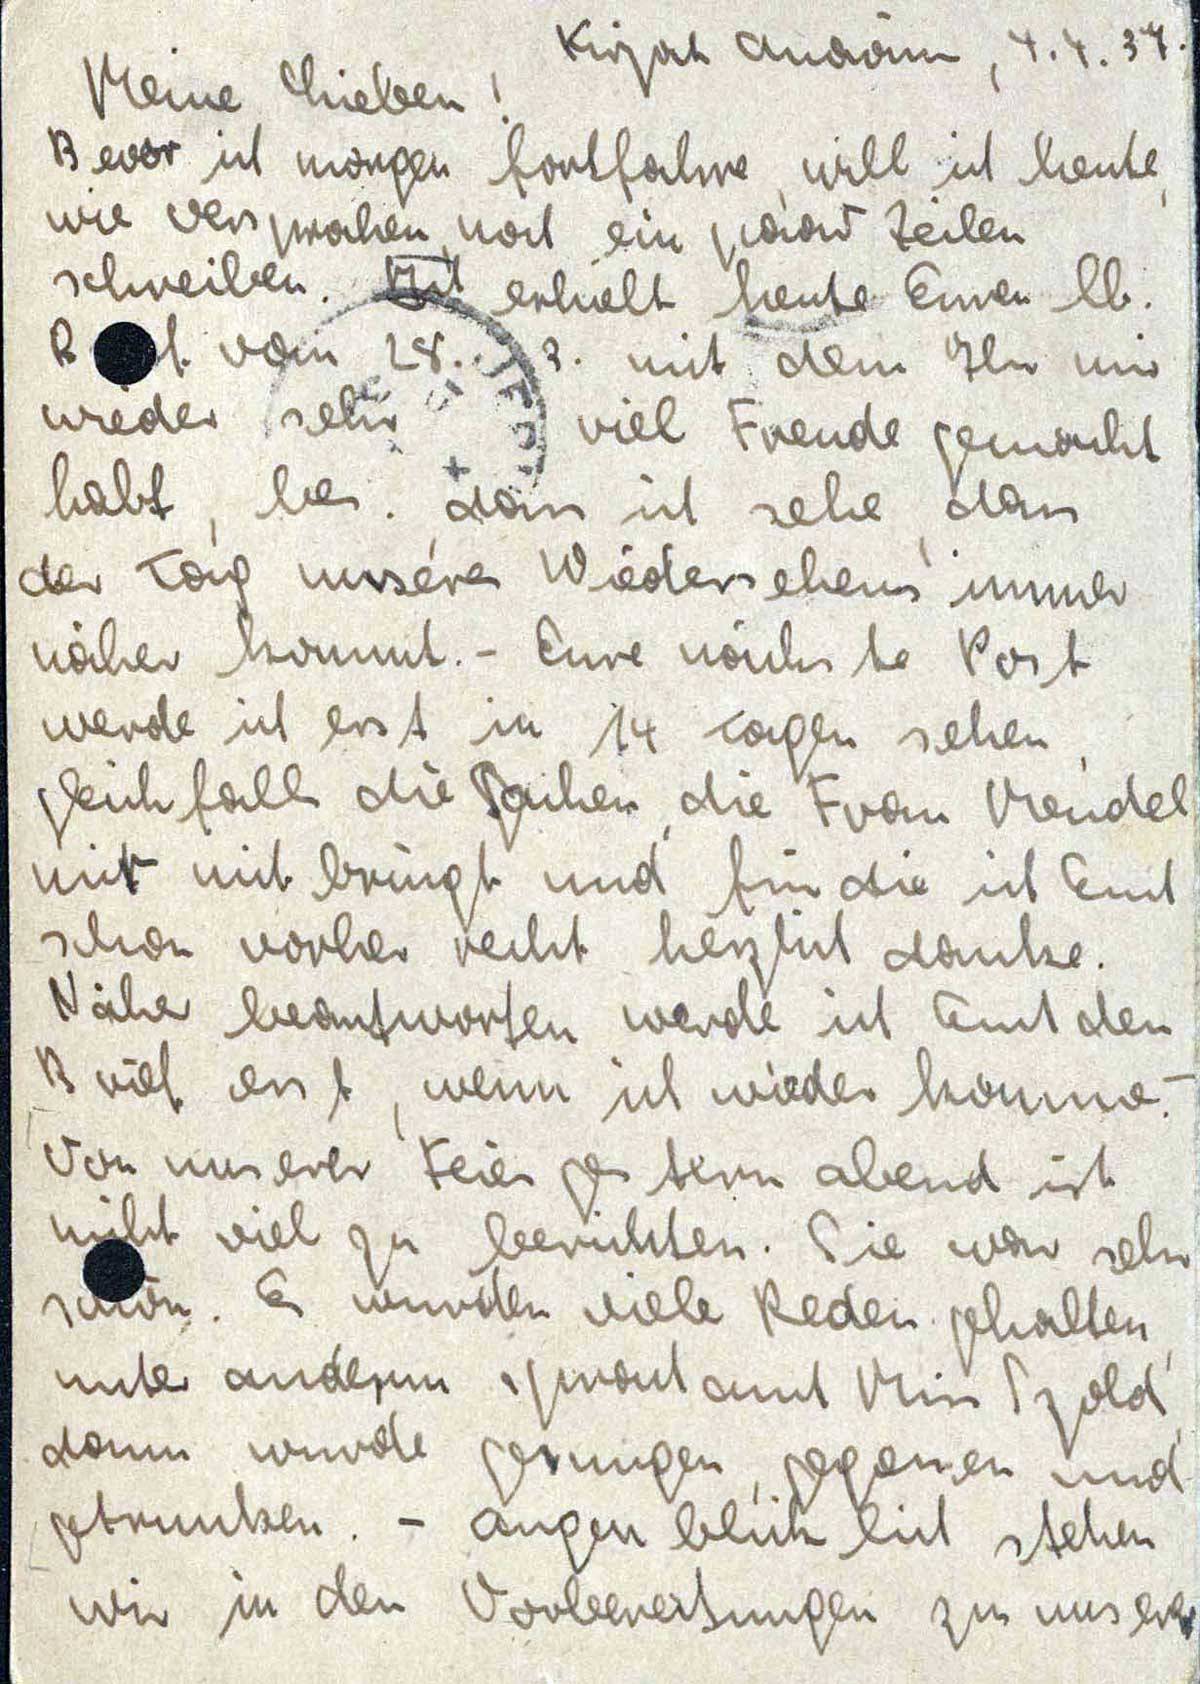 Kirjat Anavim, 4.4.37.
Meine Lieben!
Bevor ich morgen fortfahre, will ich heute,
wie versprochen, noch ein paar Zeilen
schreiben. Ich erhielt heute Euren lb.
B f. vom 28. 3. mit dem Ihr mir
wieder sehr viel Freude gemacht
habt, bes. dass ich sehe, dass
der Tag unseres Wiedersehens immer
näher kommt. - Eure nächste Post
werde ich erst in 14 Tagen sehen,
gleichfalls die Sachen, die Frau Mendel
mir mitbringt und für die ich Euch
schon vorher recht herzlich danke.
Näher beantworten werde ich Euch den
Brief erst, wenn ich wieder komme. -
Von unserer Feier gestern abend ist
nicht viel zu berichten. Sie war sehr
schön. Es wurden viele Reden gehalten,
unter anderem sprach auch Miss Szold,
dann wurde gesungen, gegessen und
getrunken. - Augenblicklich stehen
wir in den Vorbereitungen zu unserer